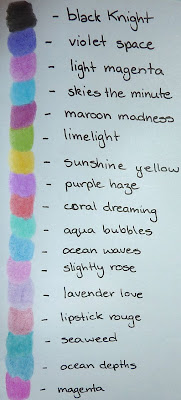 - black Knight
- violet space
- light magenta
- skies the minute
- maroon madness
- limelight
- sunshine yellow
- purple haze
- coral dreaming
- aqua bubbles
- ocean waves
- slightly rose
- lavender love
- lipstick rouge
- seaweed
- ocean depths
- magenta